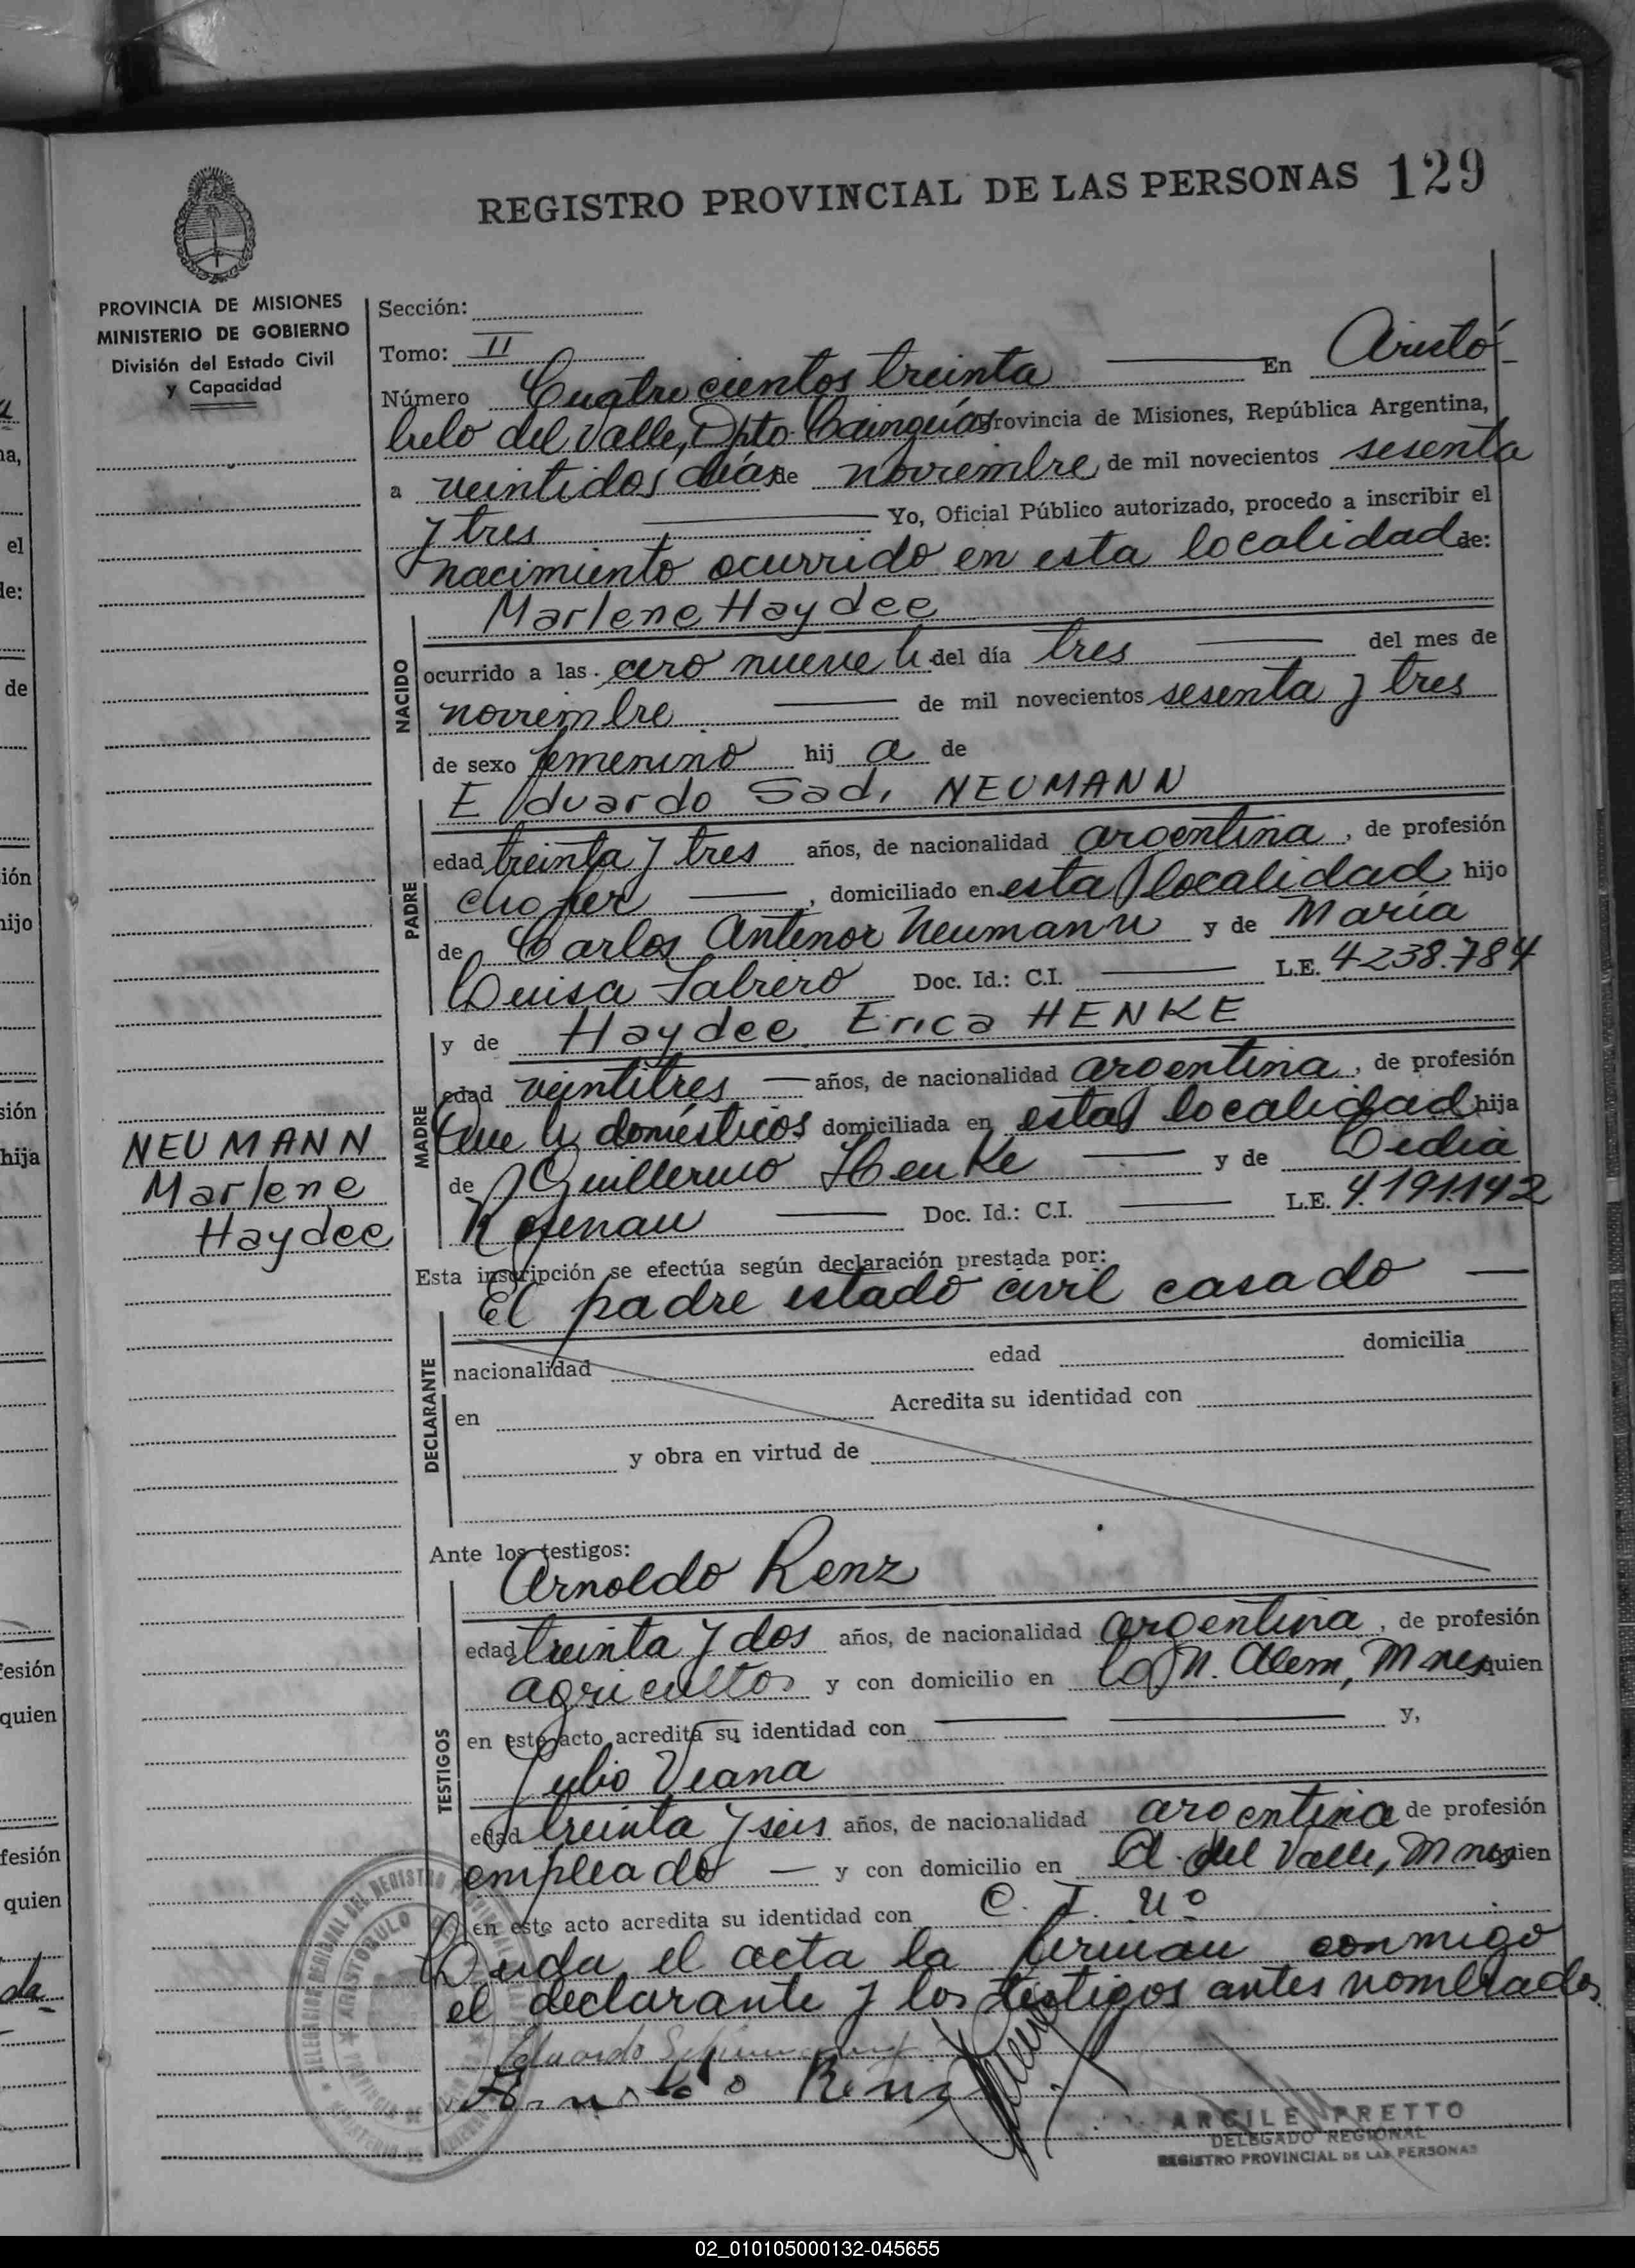 REGISTRO PROVINCIAL DE LAS PERSONAS 129
PROVINCIA DE MISIONES
MINISTERIO DE GOBIERNO
División del Estado Civil
y Capacidad
Sección:
Tomo: II
Número Cuatrocientos treinta En Aristó-
bulo del Valle, Dpto. Cainguás Provincia de Misiones, República Argentina,
a veintidos días de noviembre de mil novecientos sesenta
y tres Yo, Oficial Público autorizado, procedo a inscribir el
nacimiento ocurrido en esta localidad de:
NACIDO
Marlene Haydee
ocurrido a las cero nueve h. del día tres del mes de
noviembre de mil novecientos sesenta y tres
de sexo femenino hij a de
PADRE
Eduardo Sadi NEUMANN
edad treinta y tres años, de nacionalidad argentina, de profesión
chofer, domiciliado en esta localidad hijo
de Carlos Antenor Neumann y de María
Luisa Sabrero Doc. Id.: C.I. L.E. 4238.784
MADRE
y de Haydee Erica HENKE
edad veintitres años, de nacionalidad argentina, de profesión
Que h. domésticos domiciliada en esta localidad hija
de Guillermo Henke y de Lidia
Rosenau Doc. Id.: C.I. L.E. 4.191.142
NEUMANN
Marlene
Haydee
Esta inscripción se efectúa según declaración prestada por:
DECLARANTE
El padre estado civil casado
nacionalidad edad domicilia
en Acredita su identidad con
y obra en virtud de
Ante los testigos:
TESTIGOS
Arnoldo Renz
edad treinta y dos años, de nacionalidad argentina, de profesión
agricultor y con domicilio en L. N. Alem, Mnes quien
en este acto acredita su identidad con y,
Julio Viana
edad treinta y seis años, de nacionalidad argentina de profesión
empleado y con domicilio en A. del Valle, Mnes quien
en este acto acredita su identidad con C. I. Nº
Leida el acta la firman conmigo
el declarante y los testigos antes nombrados
Arnoldo Renz
ARGILE PRETTO
DELEGADO REGIONAL
REGISTRO PROVINCIAL DE LAS PERSONAS
02_010105000132-045655